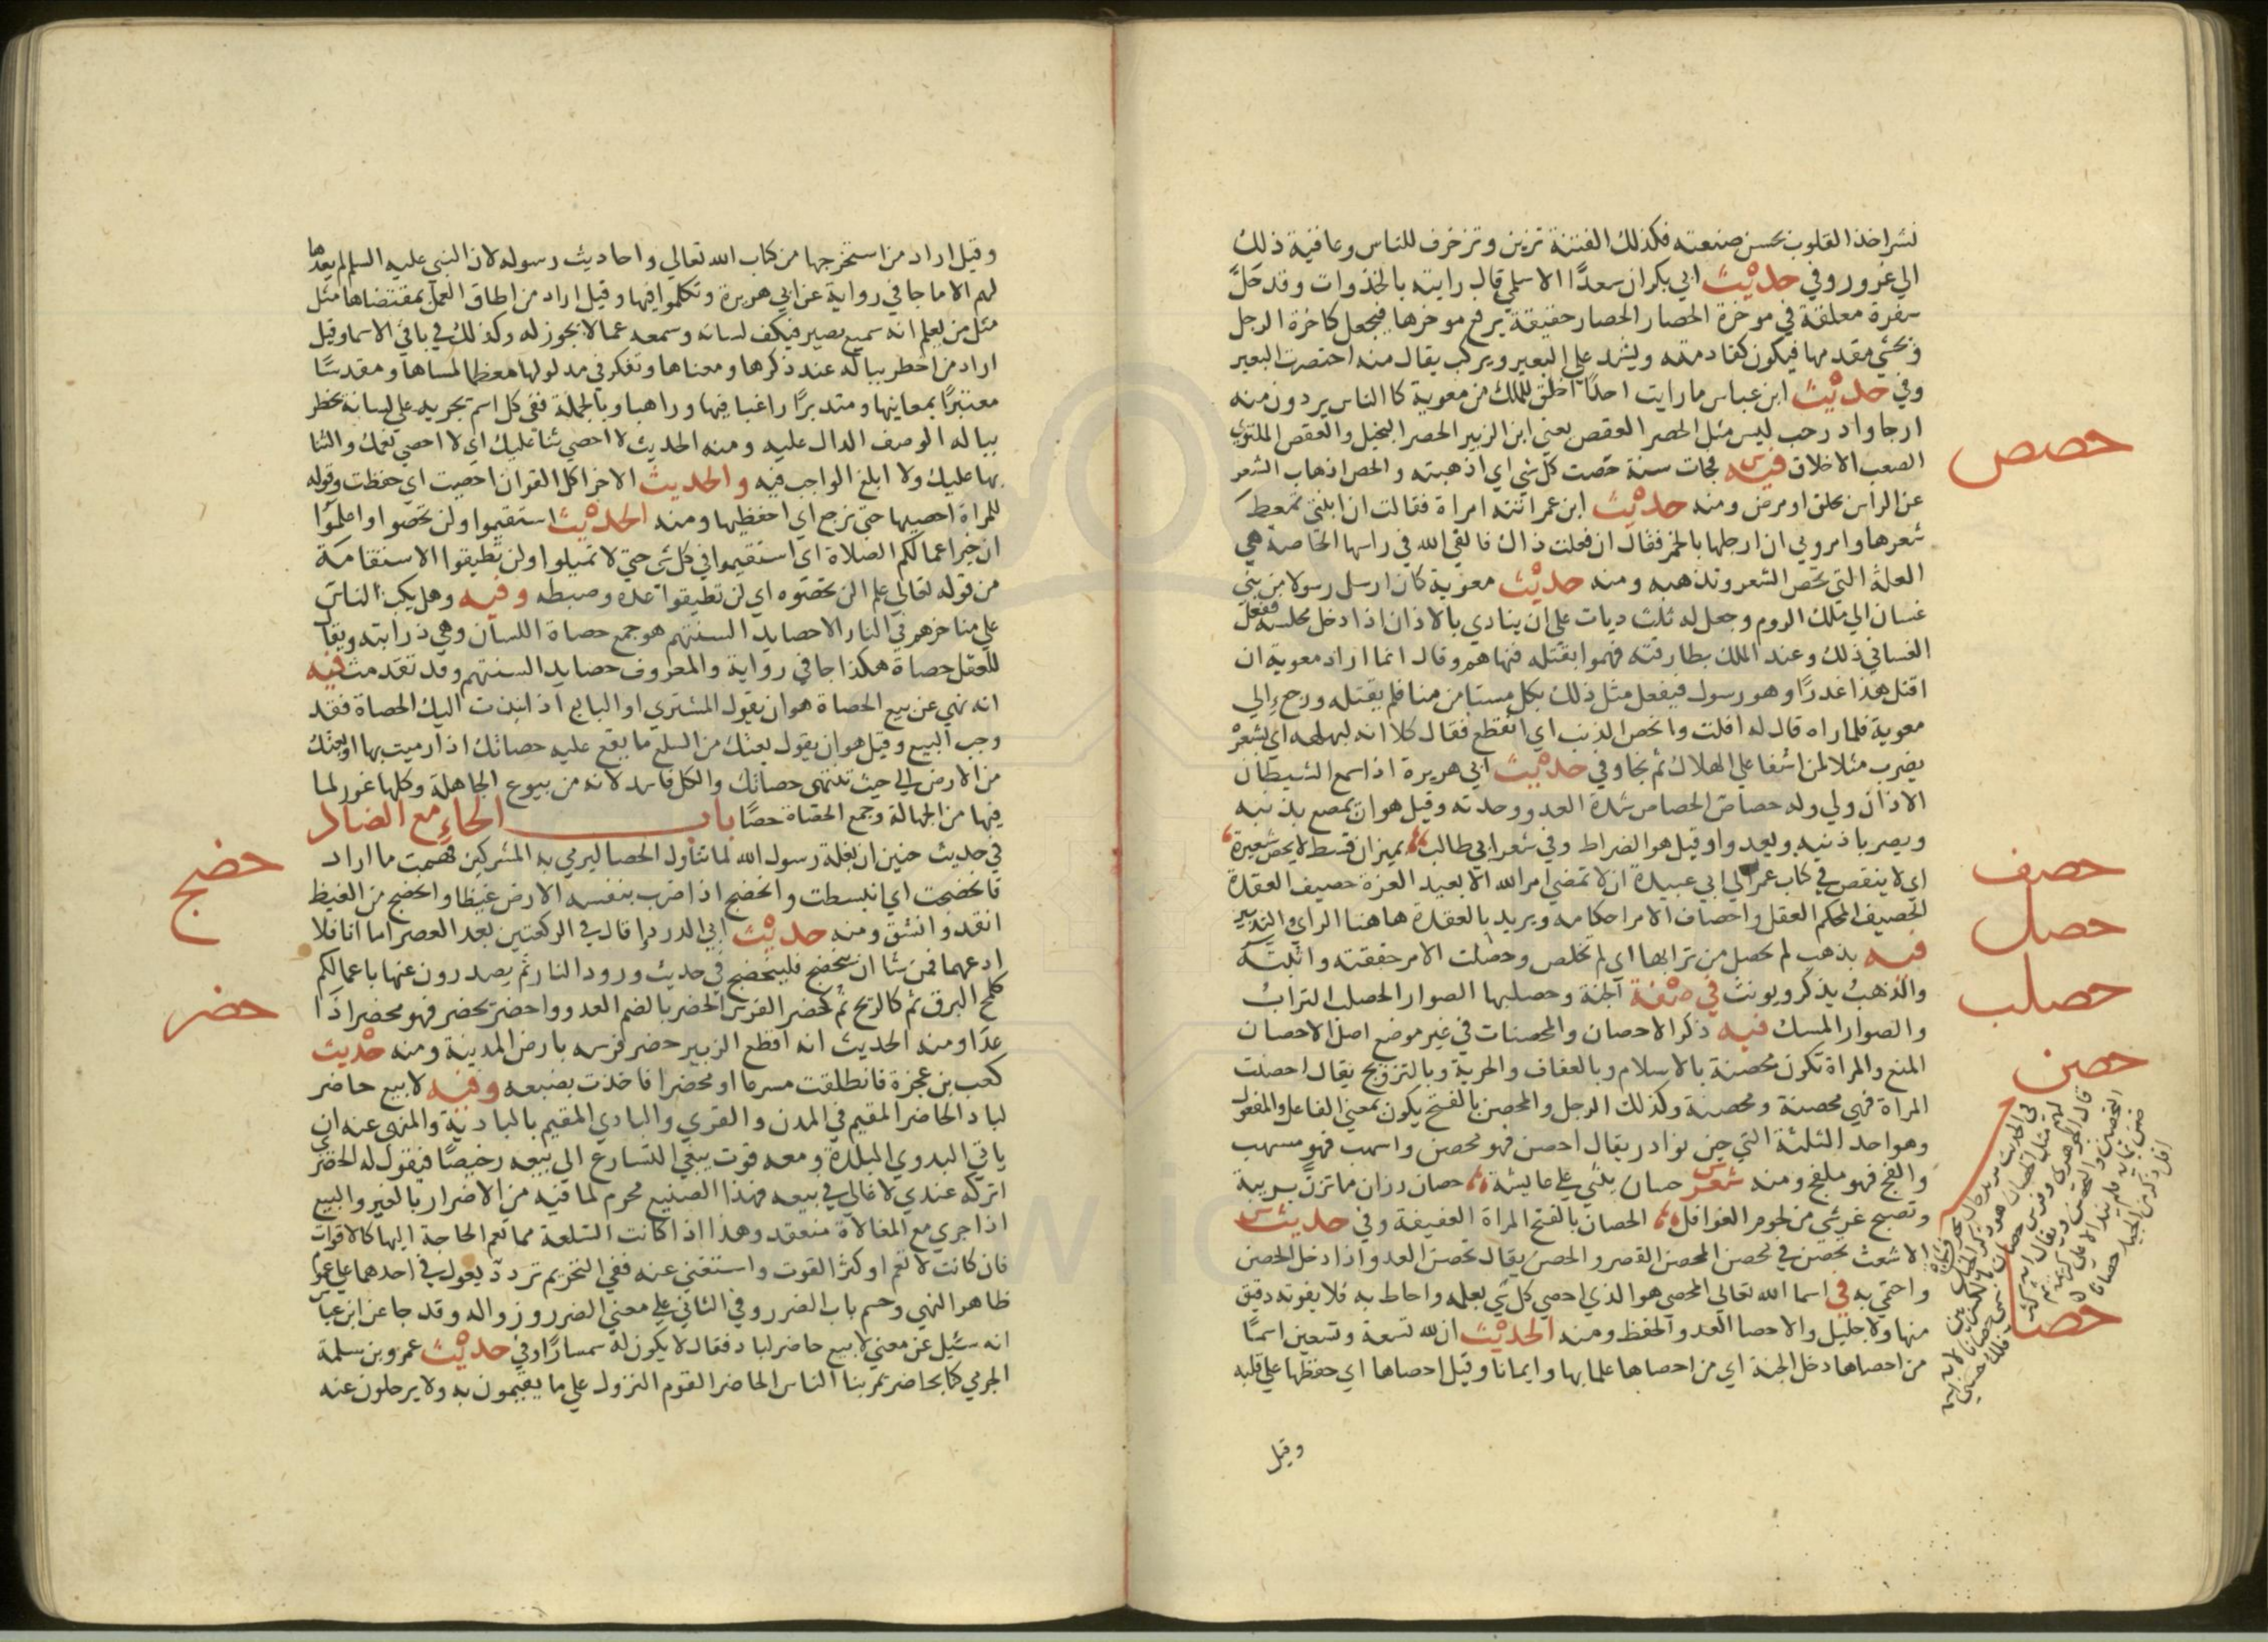 نشر اخذ القلوب بحسن صنعته فكذلك الفتنة تزين وتزخرف للناس وعاقبة ذلك
الي غرور وفي حديث ابي بكر ان سعدًا الاسلمي قال رايته بالخذوات وقد حَلّ
سفرة معلقة في موخرة الحصار الحصار حقيقة يرفع موخرها فيجعل كاخرة الرحل
ويحشي مقدمها فيكون كقادمته ويشد علي البعير ويركب يقال منه احتصرت البعير
وفي حديث ابن عباس ما رايت احدًا اخلق للملك من معوية كا الناس يردون منه
ارجا واد رحب ليس مثل الحصر العقص يعني ابن الزبير الحصر البخيل والعقص الملتوي
حصص
الصعب الاخلاق فيه فجات سنة حصت كل شي اي اذهبته والحص اذهاب الشعر
عن الراس بحلق او مرض ومنه حديث ابن عمر اتته امراة فقالت ان ابنتي تمعط
شعرها وامروني ان ارجلها بالخمر فقال ان فعلت ذاك فالقي الله في راسها الحاصة هي
العلة التي تحص الشعر وتذهبه ومنه حديث معوية كان ارسل رسولا من بني
غسان الي ملك الروم وجعل له ثلث ديات علي ان ينادي بالاذان اذا دخل مجلسه ففعل
الغساني ذلك وعند الملك بطارقته فهموا بقتله فنهاهم وقال انما اراد معوية ان
اقتل هذا غدرًا وهو رسول فيفعل مثل ذلك بكل مستامن منا فلم يقتله ورجع الي
معوية فلما راه قال له افلت وانحص الذنب اي انقطع فقال كلا انه لبهلبه اي بشعره
يضرب مثلا لمن اشفا علي الهلاك ثم نجا وفي حديث ابي هريرة اذا سمع الشيطان
الاذان ولي وله حصاص الحصاص شدة العدو وحدته وقيل هو ان يمصع بذنبه
ويصر باذنيه ويعدوا وقيل هو الضراط وفي شعر ابي طالب بميزان قسط لا يحص شعيرة
حصف
اي لا ينقص في كتاب عمر الي ابي عبيدة ان لا تمضي امر الله الا بعيد الغرة حصيف العقدة
الحصيف المحكم العقل واحصاف الامر احكامه ويريد بالعقدة هاهنا الراي والتدبير
حصل
فيه بذهب لم تحصل من ترابها اي لم تخلص وحصلت الامر حققته واثبته
حصلب
والذهب يذكر ويونث في صفة الجنة وحصلبها الصوار الحصلب التراب
والصوار المسك فيه ذكر الاحصان والمحصنات في غير موضع اصل الاحصان
حصن
المنع والمراة تكون محصنة بالاسلام وبالعفاف والحرية وبالتزويج يقال احصنت
المراة فهي محصنة ومحصنة وكذلك الرجل والمحصن بالفتح يكون بمعني الفاعل والمفعول
وهو احد الثلثة التي جين نوادر يقال احصن فهو محصن واسهب فهو مسهب
والفج فهو ملفج ومنه شعر حسان يثني علي عايشة حصان رزان ما تزن بريبة
وتصبح غرثي من لحوم الغوافل الحصان بالفتح المراة العفيفة وفي حديث
الاشعث تحصن في محصن المحصن القصر والحصن يقال تحصن العدو اذا دخل الحصن
حصا
واحتمي به في اسما الله تعالي المحصي هو الذي احصي كل شي بعلمه واحاط به فلا يفوته دقيق
منها ولا جليل والاحصا العد والحفظ ومنه الحديث ان لله تسعة وتسعين اسمًا
من احصاها دخل الجنة اي من احصاها علما بها وايمانا وقيل احصاها اي حفظها علي قلبه
وقيل
وقيل اراد من استخرجها من كتاب الله تعالي واحاديث رسوله لان النبي عليه السلم لم يعدها
لهم الا ما جا في رواية عن ابي هريرة وتكلموا فيها وقيل اراد من اطاق العمل بمقتضاها مثل
مثل من يعلم انه سميع بصير فيكف لسانه وسمعه عما لا يجوز له وكذلك في باقي الاسما وقيل
اراد من اخطر بباله عند ذكرها ومعناها وتفكر في مدلولها معظما لمسماها ومقدسًا
معتبرًا بمعاينها ومتدبرًا راغبا فيها وراهبا وبالجملة ففي كل اسم تجريه علي لسانه يخطر
بباله الوصف الدال عليه ومنه الحديث لا احصي ثنا عليك اي لا احصي نعمك والثنا
بها عليك ولا ابلغ الواجب فيه والحديث الاخر اكل القران احصيت اي حفظت وقوله
للمراة احصيها حتي نرجع اي احفظيها ومنه الحديث استقيموا ولن تحصوا واعلموا
ان خير اعمالكم الصلاة اي استقيموا في كل شي حتي لا تميلوا ولن تطيقوا الاستقامة
من قوله تعالي علم ان لن تحصوه اي لن تطيقوا عده وضبطه وفيه وهل يكب الناس
علي مناخرهم في النار الا حصايد السنتهم هو جمع حصاة اللسان وهي ذرابته ويقال
للعقل حصاة هكذا جا في رواية والمعروف حصايد السنتهم وقد تقدمت فيه
انه نهي عن بيع الحصاة هو ان يقول المشتري او البايع اذا نبذت اليك الحصاة فقد
وجب البيع وقيل هو ان يقول بعتك من السلع ما يقع عليه حصاتك اذا رميت بها او بعتك
من الارض الي حيث تنتهي حصاتك والكل فاسد لانه من بيوع الجاهلة وكلها غرر لما
فيها من الجهالة وجمع الحصاة حصًا باب الحاء مع الضاد
حضج
في حديث حنين ان بغلة رسول الله لما تناول الحصا ليرمي به المشركين فهمت ما اراد
فانحضجت اي انبسطت وانحضج اذا ضرب بنفسه الارض غيظا وانحضج من الغيظ
انقد وانشق ومنه حديث ابي الدردا قال في الركعتين بعد العصر اما انا فلا
ادعهما فمن شا ان ينحضج فلينحضج في حديث ورود النار ثم يصدرون عنها باعمالكم
حضر
كلمح البرق ثم كالريح ثم كحضر الفرس الحضر بالضم العدو واحضر يحضر فهو محضر اذا
عدا ومنه الحديث انه اقطع الزبير حضر فرسه بارض المدينة ومنه حديث
كعب بن عجزة فانطلقت مسرعا او محضرا فاخذت بضبعه وفيه لا يبع حاضر
لباد الحاضر المقيم في المدن والقري والبادي المقيم بالبادية والمنهي عنه ان
ياتي البدوي البلدة ومعه قوت يبغي التسارع الي بيعه رخيصًا فيقول له الحضري
اتركه عندي لاغالي في بيعه فهذا الصنيع محرم لما فيه من الاضرار بالغير والبيع
اذا جري مع المغالاة منعقد وهذا اذا كانت السلعة مما تعم الحاجة اليها كالاقوات
فان كانت لا تعم او كثر القوت واستغني عنه ففي التحريم تردد يعول في احدهما علي عموم
ظاهر النهي وحسم باب الضرر وفي الثاني علي معني الضرر وزواله وقد جا عن ابن عباس
انه سئيل عن معني لا يبيع حاضر لباد فقال لا يكون له سمسارًا وفي حديث عمرو بن سلمة
الجرمي كا بحاضر تمر بنا الناس الحاضر القوم النزول علي ما يقيمون به ولا يرحلون عنه